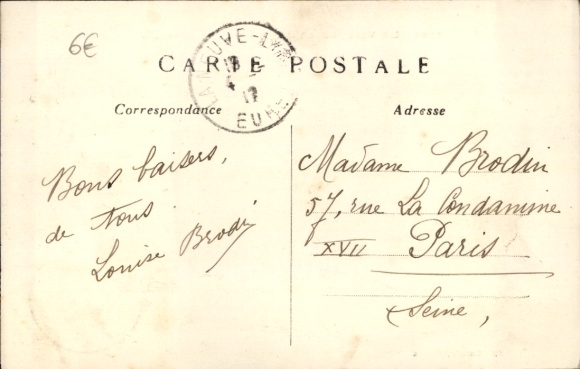 6€
CARTE POSTALE
LA NEUVE-LYRE
EURE
17
Correspondance
Adresse
Bons baisers,
de tous
Louise Brodin
Madame Brodin
57, rue La Condamine
XVII Paris
Seine,